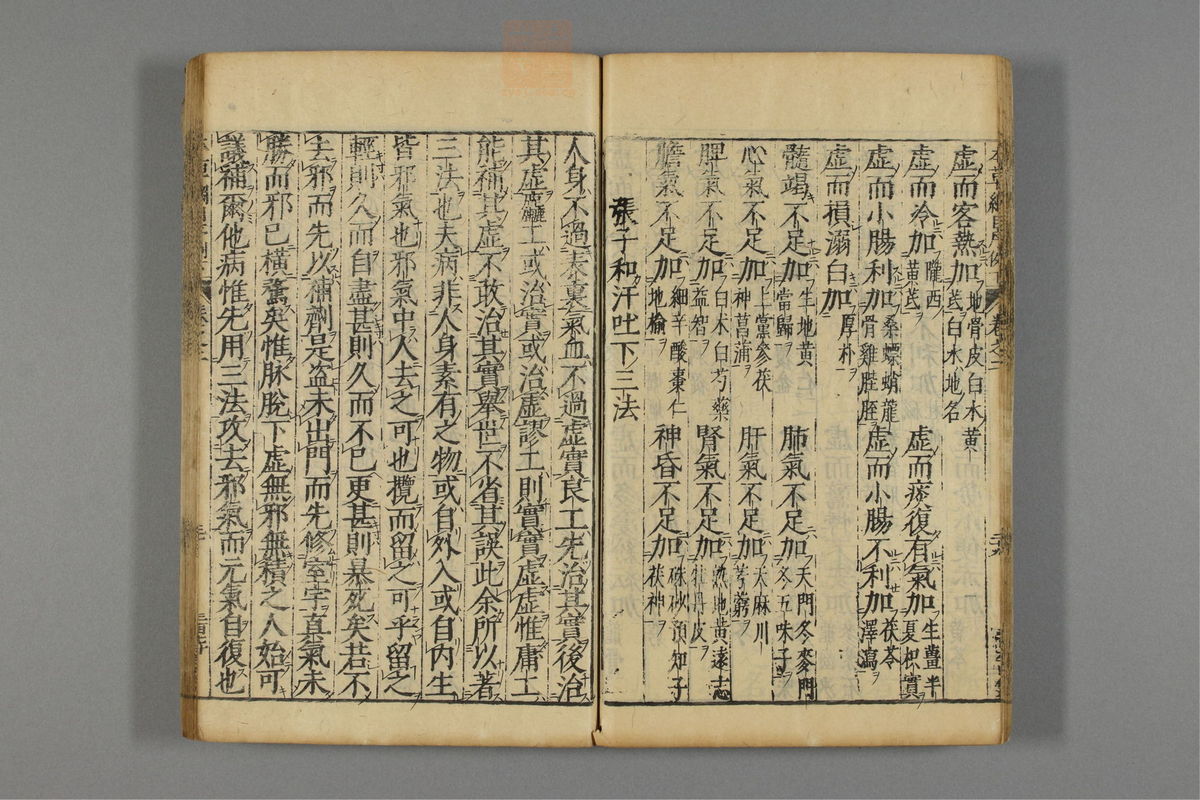 虛而客熱加地骨皮白水黃芪白水地名
虛而冷加隴西黃芪　虛而痰復有氣加生薑半夏枳實
虛而小腸利加桑螵蛸龍骨雞胵胵　虛而小腸不利加茯苓澤瀉
虛而損溺白加厚朴
髓竭不足加生地黃當歸　肺氣不足加天門冬麥門冬五味子
心氣不足加上黨參茯神菖蒲　肝氣不足加天麻川芎藭
脾氣不足加白朮白芍藥益智　腎氣不足加熟地黃遠志牡丹皮
膽氣不足加細辛酸棗仁地榆　神昏不足加硃砂預知子茯神
張子和汗吐下三法
人身不過表裏氣血不過虛實良工先治其實後治
其虛麄工或治實或治虛謬工則實實虛虛惟庸工
能補其虛不敢治其實舉世不省其誤此余所以著
三法也夫病非人身素有之物或自外入或自內生
皆邪氣也邪氣中人去之可也攬而留之可乎留之
輕則久而自盡甚則久而不已更甚則暴死矣若不
去邪而先以補劑是盜未出門而先修室宇真氣未
勝而邪已橫騖矣惟脉脫下虛無邪無積之人始可
議補爾他病惟先用三法攻去邪氣而元氣自復也